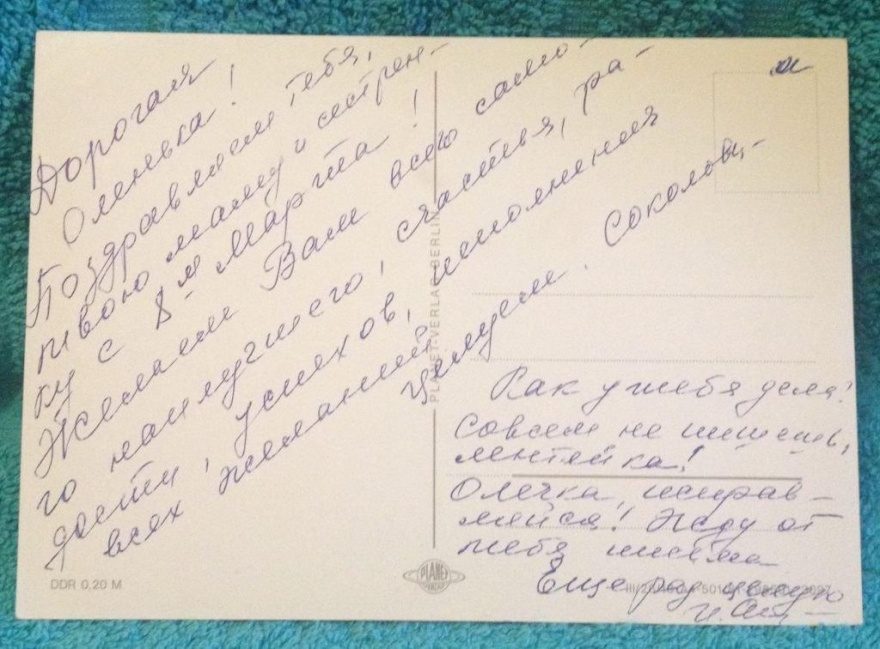 Дорогая
Оленька!
Поздравляем тебя,
твою маму и сестрен-
ку с 8-м Марта!
Желаем Вам всего само-
го наилучшего, счастья, ра-
дости, успехов, исполнения
всех желаний.
Целуем. Соколовы
PLANET-VERLAG BERLIN
Как у тебя дела?
Совсем не пишешь,
лентяйка!
Олечка, исправ-
ляйся! Жду от
тебя письма
Еще раз целую
PLANET
DDR 0.20 M